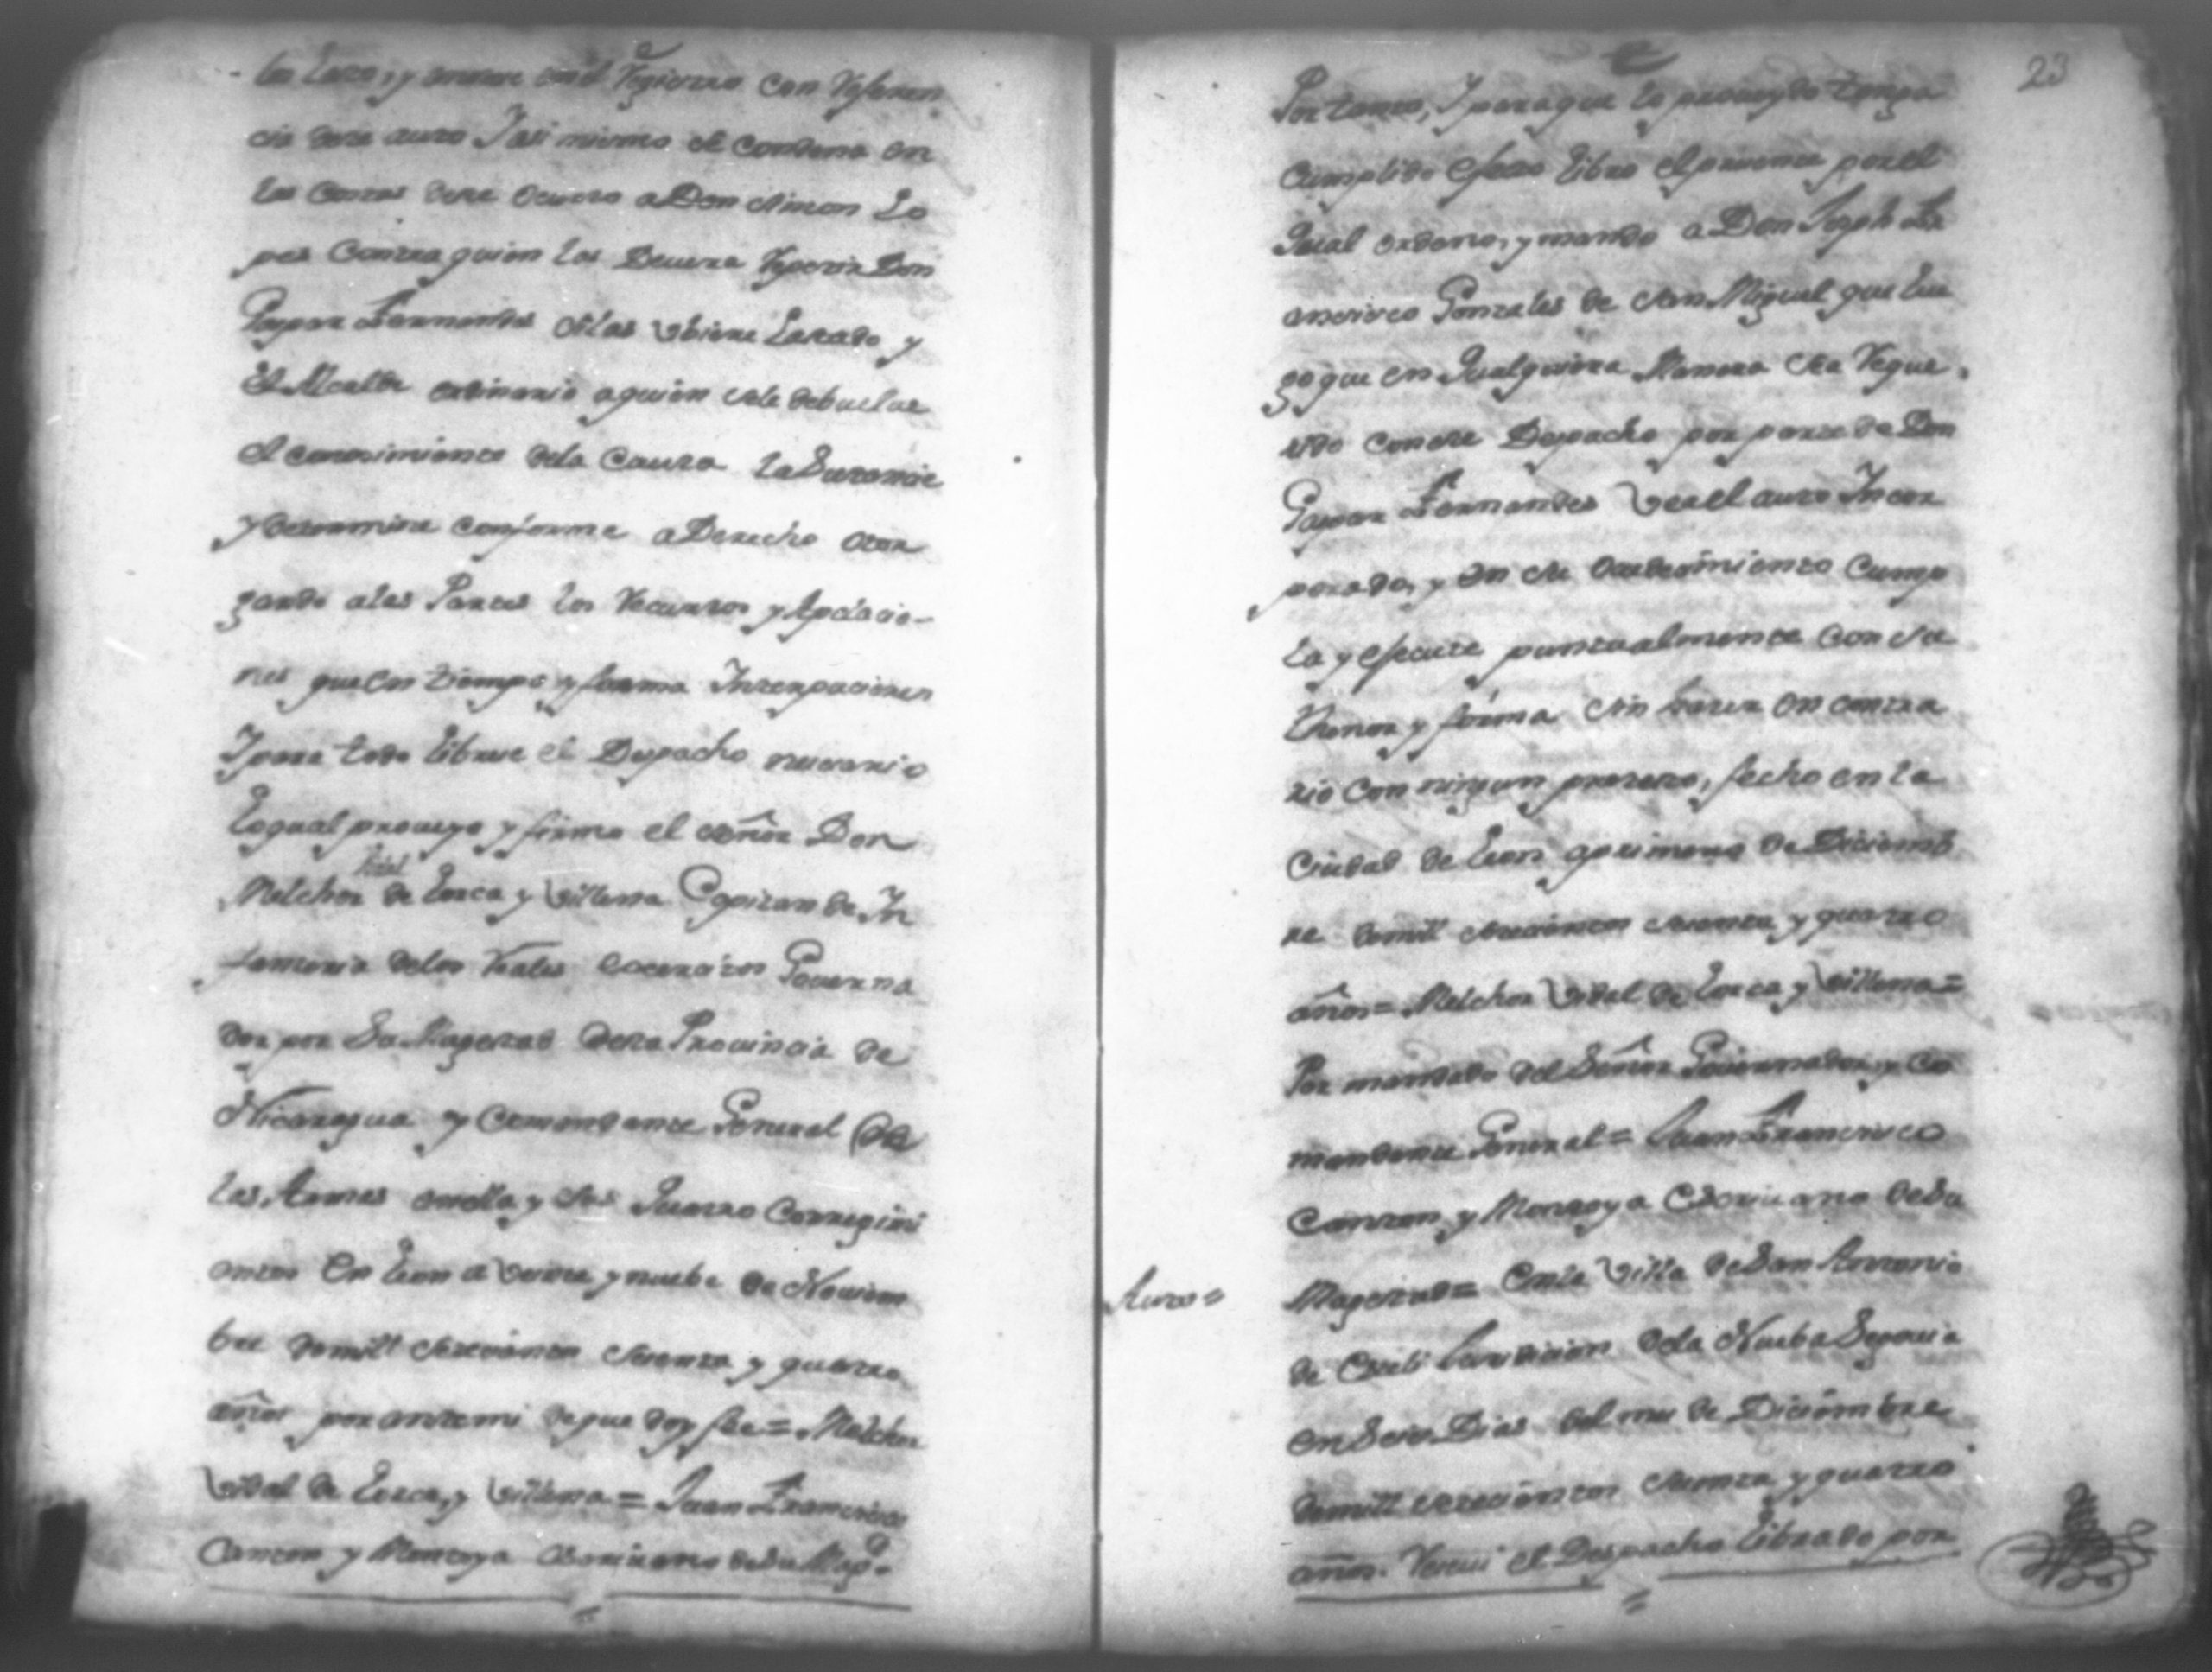 y anote en el Registro con Referen
cia deste auto Y asi mismo se condena en
las Costas deste Ocurso a Don Simon Lo
pes Contra quien las Deuera Repetir Don
Gaspar Fernandes si las vbiere lastado y
El Alcalde ordinario a quien se le debuelue
el conosimiento de la Causa la Sustancie
y determine conforme a Derecho otor
gando a las Partes los Recursos y Apelacio-
nes que en tiempo y forma Interpucieren
Y para todo librese el Despacho nesesario
Lo qual proueyo y firmo el señor Don
Vidal
Melchor de Lorca y Villena Capitan de In
fanteria de los Reales exercitos Gouerna
dor por Su Magestad desta Prouincia de
Nicaragua y Comandante General de
las Armas en ella y sus Quatro Corregimi
entos En Leon a veinte y nuebe de Nouiem
bre de mill setecientos setenta y quatro
años por ante mi de que doy fee = Melchor
Vidal de Lorca y Villena = Juan Francisco
Canton y Montoya Escriuano de Su Magd.
23
Por tanto, Y para que lo proueydo tenga
Cumplido efecto libro el presente por el
Qual ordeno, y mando a Don Joseph Fr
ancisco Gonzales de San Miguel que lue
go que en Qualquiera Manera sea Reque-
rido con este Despacho por parte de Don
Gaspar Fernandes vea el auto Incor
porado, y en su Ovedecimiento Cump
la y efecute puntualmente con su
thenor y forma sin haser en contra
rio con ningun pretexto, fecho en la
Ciudad de Leon a primero de Diciemb
re de mill setecientos setenta y quatro
años = Melchor Vidal de Lorca y Villena =
Por mandado del Señor Gouernador y Co
mandante General = Juan Francisco
Canton y Montoya Escriuano de Su
Auto =
Magestad = En la Villa de San Antonio
de Esteli Jurisdicion de la Nueba Segouia
en Seis Dias del mes de Diciembre
de mill setecientos setenta y quatro
años. Reciui el Despacho librado por